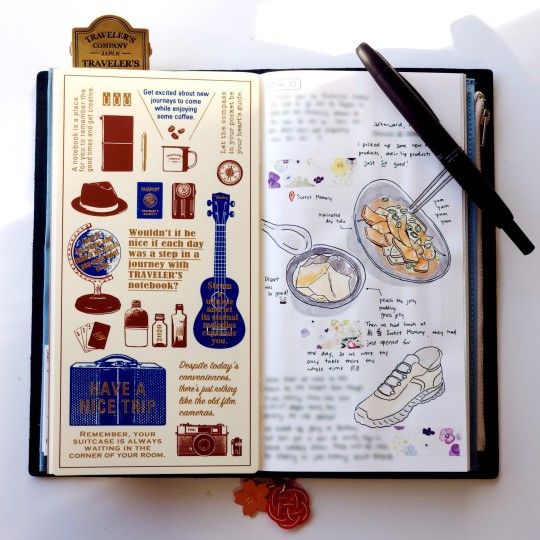 TRAVELER'S
COMPANY
JAPAN
TRAVELER'S
A notebook is a place
for you to remember the
good times and get creative.
Get excited about new
journeys to come
while enjoying
some coffee.
Let the compass
in your pocket be
your heart's guide.
PASSPORT
Wouldn't it be
nice if each day
was a step in a
journey with
TRAVELER'S
notebook?
Strum
ukulele
and let
its eternal
melodies
2020
HAVE A
NICE TRIP
REMEMBER, YOUR
SUITCASE IS ALWAYS
WAITING IN THE
CORNER OF YOUR ROOM.
Despite today's
conveniences,
there's just nothing
like the old film
cameras.
afterward,
I picked up some new
products, their lip products
just so good!
Sweet Memory
marinated
dry tofu
yum
yum
yum
yum
so good!
peach tea jelly
pudding
grass jelly
Then we had lunch at
Sweet Memory, they had
just opened for
the day, so we were the
only table there the
whole time